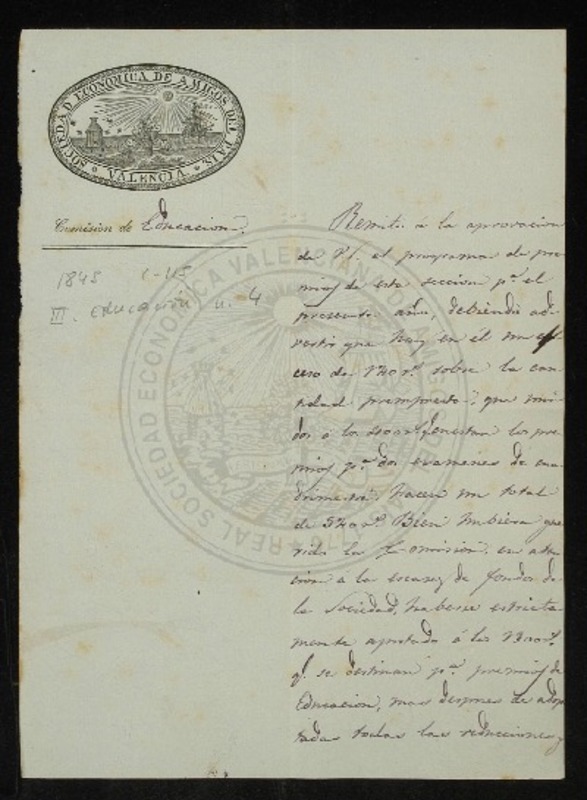 SOCIEDAD ECONOMICA DE AMIGOS DEL PAIS
VALENCIA
Comisión de Educacion
1845 C-115
III. educación n. 4
REAL SOCIEDAD ECONOMICA VALENCIANA DE AMIGOS DEL PAIS
1776
Remito á la aprovacion
de V.S. el programa de pre
mios de esta seccion pª el
presente año, debiendo ad
vertir que hay en él un ex
ceso de sobre la can
tidad presupuesta, que uni
dos á los que cuestan los pre
mios pª dos examenes de cua
drimestre, hacen un total
de Bien hubiera que
rido la Comision, en aten
cion á la escasez de fondos de
la Sociedad, haberse estricta
mente ajustado á los
q.e se destinan pª premios de
Educacion, mas despues de adop
tadas todas las reducciones